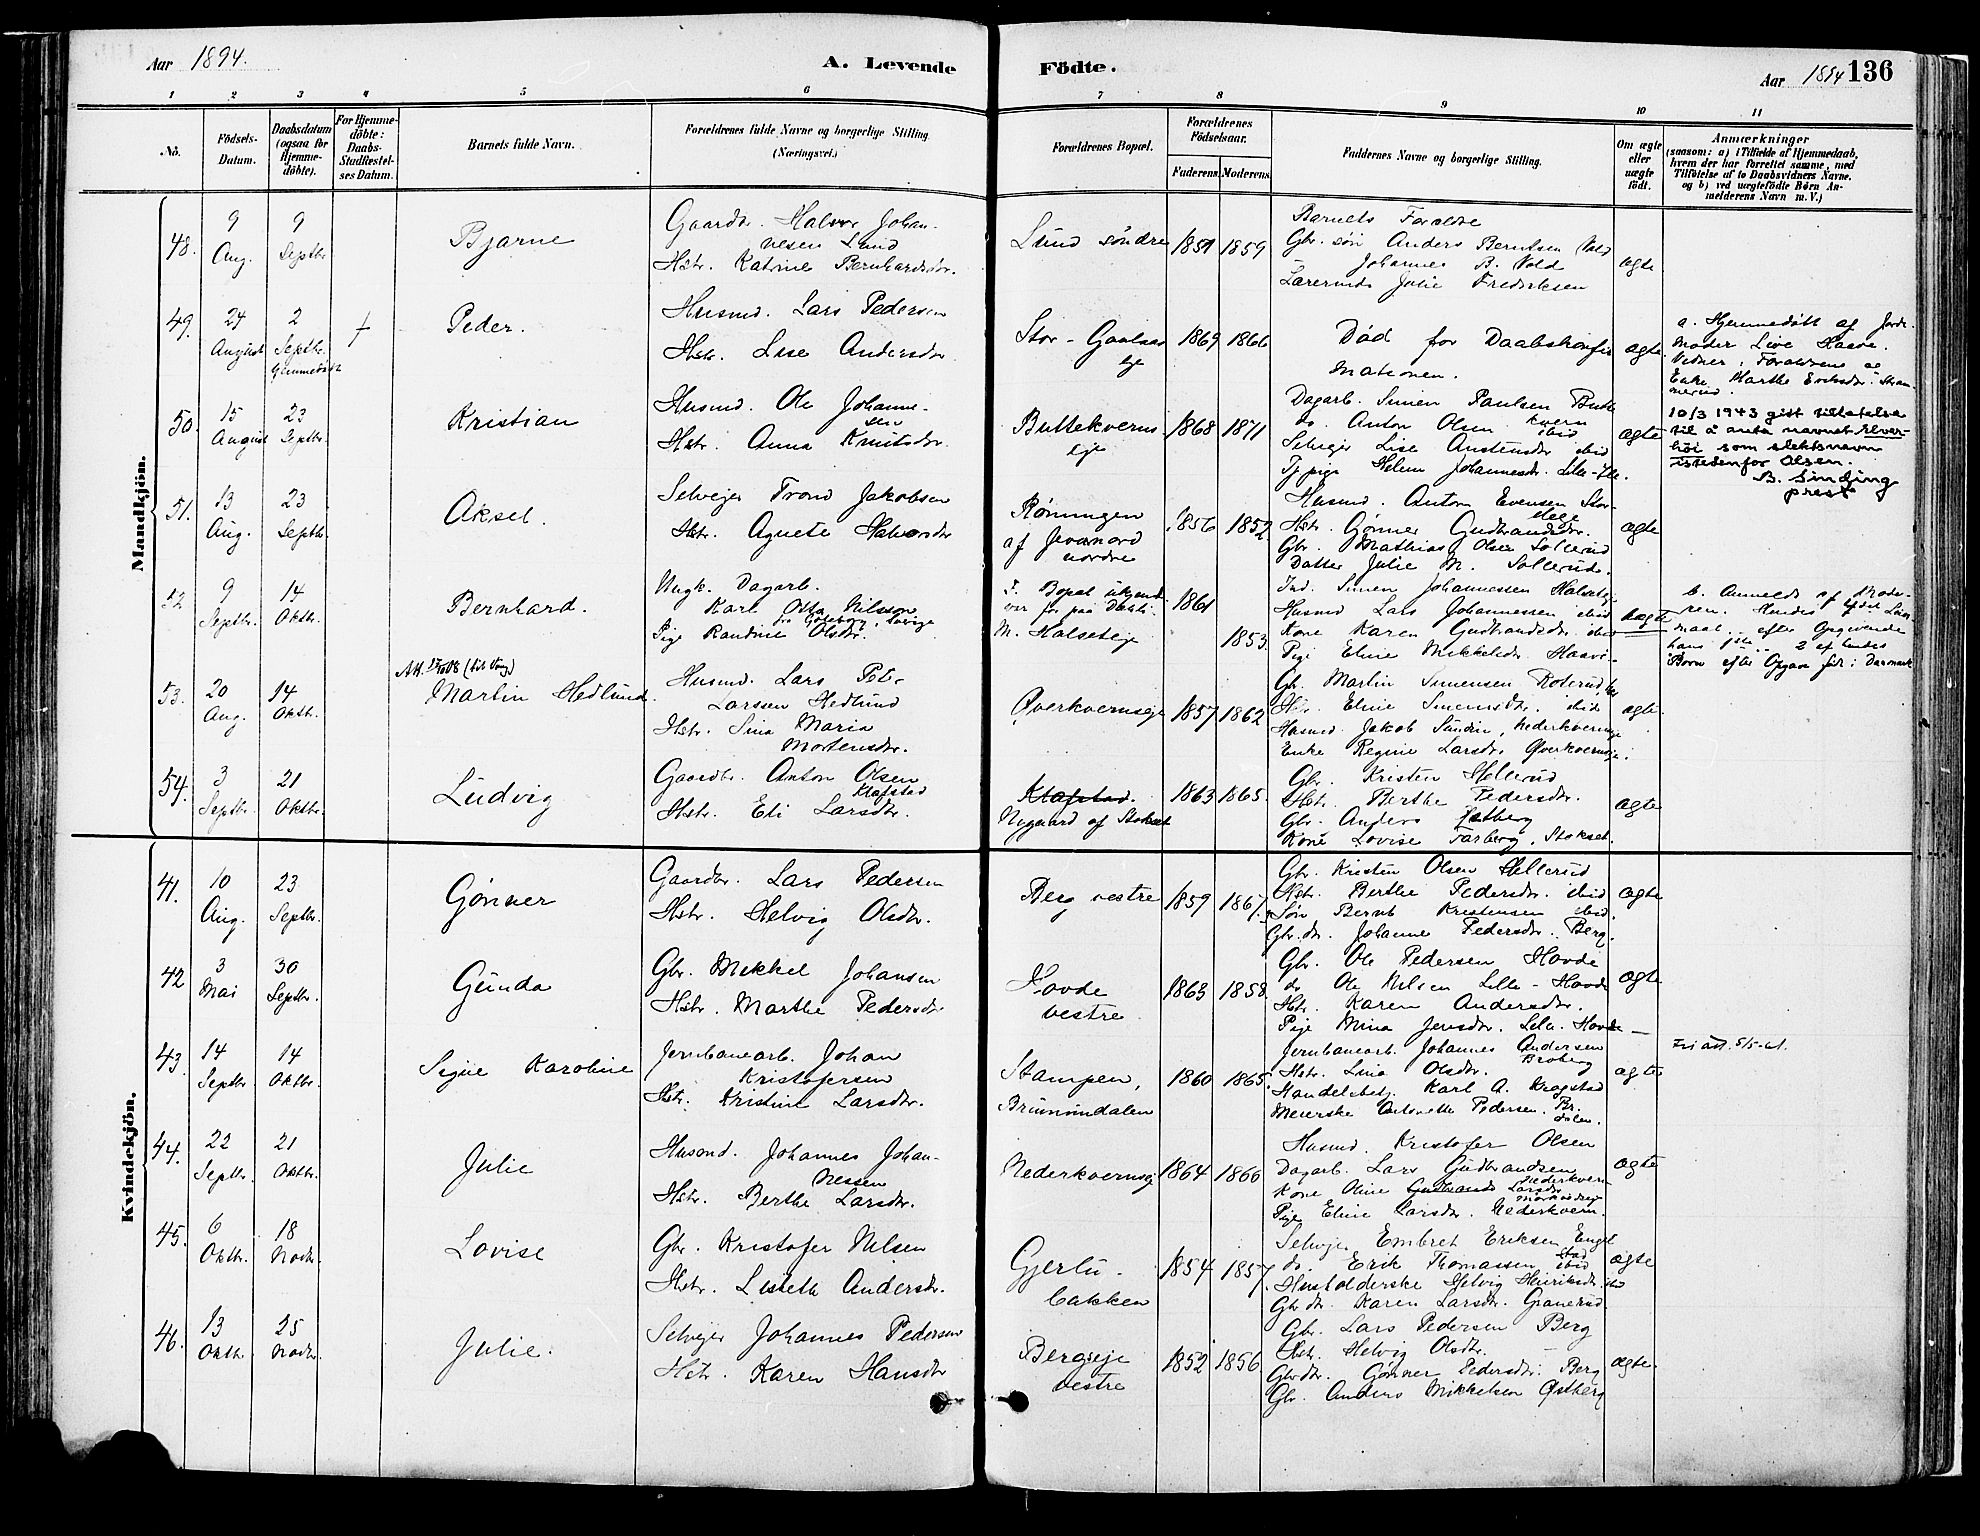 Aar 1894.
A. Levende
Födte.
Aar 1894
136
1
2
3
4
5
6
7
8
9
10
11
No.
Födsels-
Datum.
Daabsdatum
(ogsaa for
Hjemme-
döbte).
For Hjemme-
döbte:
Daabs-
Stadfæstel-
ses Datum.
Barnets fulde Navn.
Forældrenes fulde Navne og borgerlige Stilling
(Næringsvei.)
Forældrenes Bopæl.
Forældrenes
Födselsaar.
Faderens.
Moderens.
Faddernes Navne og borgerlige Stilling.
Om ægte
eller
uægte
födt.
Anmærkninger
(saasom: a) i Tilfælde af Hjemmedaab,
hvem der har forrettet samme, med
Tilföielse af to Daabsvidners Navne,
og b) ved uægtefödte Börn An-
melderens Navn m. V.)
Mandkjön.
48.
9
Aug.
9
Septbr
Bjarne
Gaardbr. Halvor Johan-
nesen Lund
Hstr. Katrine Bernhardsdr.
Lund söndre
1851
1859
Barnets Forældre
Gbr. sön Anders Berntsen Vold
Johannes B. Vold
Lærerinde Julie Fredriksen
ægte
49.
24
August
2
Septbr.
Hjemmedöbt
Peder.
Husmd. Lars Pedersen
Hstr. Lise Andersdr.
Stor-Gaalaas
eje
1869
1866
Död for Daabskonfir
mationen.
ægte
a. Hjemmedöbt af Jorde-
moder Live Haave.
Vidner, Forældrene og
Enke Marthe Eriksdr.
50.
15
August
23
Septbr.
Kristian
Husmd. Ole Johanne-
sen
Hstr. Anna Knutsdr.
Buttekverns
eje
1868
1871
Dagarb. Simen Paulsen Butte
kvern
do. Anton Olsen ibid
Selvejer Lise Austensdr. ibid
Tj. pige Helene Johannesdr. Lille-
ægte
10/3 1943 gitt tillatelse
til å anta navnet Elver-
höi som slektsnavn
istedenfor Olsen.
B. Sinding
prest
51.
13
Aug.
23
Septbr.
Aksel.
Selvejer Trond Jakobsen
Hstr. Agnete Halvorsdr
Röningen
af
nordre
1856
1852
Husmd. Anton Evensen Stor-
Hstr. Gönner Gudbrandsdr.
Gbr. Mathias Olsen Sollerud
Datter Julie M. Sollerud.
ægte
52
9
Septbr.
14
Oktbr.
Bernhard.
Ungk. Dagarb.
Karl Otto Nilsson
fra Göteborg, Sverige
Pige Randine Olsdr.
F. Bopæl ukjendt
M. Halseteje
1861
1853
Ind. Simen Johannessen Halseteje
Husmd Lars Johannessen ibid
Kone Karen Gudbrandsdr. ibid
Pige Eline Mikkelsdr. Haave-
uægte
b. Anmeldt af Mode-
ren. Hendes
maal, efter Opgivende
hans 1ste. 2 af hendes
Börn efter Opgave födt i Danmark
53.
20
Aug.
14
Oktbr.
Martin Hedlund.
Husmd. Lars Peter
Larsson Hedlund
Hstr. Sina Maria
Mortensdr.
Överkvernseje
1857
1862
Gbr. Martin Simensen Roterud
Hstr. Eline Simensdr. ibid
Husmd. Jakob Sundin, Nederkvernseje
Enke Regine Larsdr. Överkvernseje.
ægte.
54.
3
Septbr.
21
Oktbr.
Ludvig
Gaardbr. Anton Olsen
Klafstad
Hstr. Eli Larsdr.
Klafstad.
Nygaard af Stokset
1863
1865.
Gbr. Kristen Hellerud
Hstr. Berthe Pedersdr.
Gbr. Anders Östberg
Kone Lovise Farberg, Stokset.
ægte
Kvindekjön.
41.
10
Aug.
23
Septbr.
Gönner
Gaardbr. Lars Pedersen
Hstr. Helvig Olsdr.
Berg vestre
1859
1867
Gbr. Kristen Olsen Hellerud
Hstr. Berthe Pedersdr. ibid
Sön Bernt Kristensen ibid.
Gbr. dr. Johanne Pedersdr. Berg.
ægte
42
3
Mai
30
Septbr.
Gunda
Gbr. Mikkel Johansen
Hstr. Marthe Pedersdr
Hovde
vestre
1863
1858.
Gbr. Ole Pedersen Hovde
do Ole Nilsen Lille-Hovde
Hstr. Karen Andersdr.
Pige Mina Jensdr. Lille Hovde
ægte
43.
14
Septbr.
14
Oktbr.
Signe Karoline
Jernbanearb. Johan
Kristofersen
Hstr. Kristine Larsdr.
Stampen,
Brumunddalen
1860
1865.
Jernbanearb. Johannes Andersen
Broberg
Hstr. Lina Olsdr.
Handelsbetj. Karl A. Krogstad
Meierske Antonette Pedersen. Br.
dalen.
ægte
Fri att. 5/5-61.
44.
22
Septbr.
21
Oktbr.
Julie
Husmd. Johannes Johan-
nessen
Hstr. Berthe Larsdr.
Nederkvernseje
1864
1866
Husmd. Kristofer Olsen
Dagarb. Lars Gudbrandsen
Nederkvern
Kone Oline Gudbrands Larsdr
Pige Eline Larsdr. Nederkvern.
ægte
45.
6
Oktbr.
18
Novbr.
Lovise
Gbr. Kristofer Nilsen
Hstr. Lisbeth Andersdr.
Gjerlu-
bakken
1854
1857.
Selvejer Embret Eriksen Engl
stad
do. Erik Thomassen ibid
Husholderske Helvig Henriksdr. ibid
Gbr dr. Karen Larsdr. Granerud.
ægte
46.
13
Oktbr.
25
Novbr.
Julie.
Selvejer Johannes Pedersen
Hstr. Karen Hansdr
Bergseje
vestre
1852
1856
Gbr. Lars Pedersen Berg
Hstr. Helvig Olsdr.
Gbrdtr. Gönner Pedersdr. Berg
Gbr. Anders Mikkelsen Östberg
ægte.